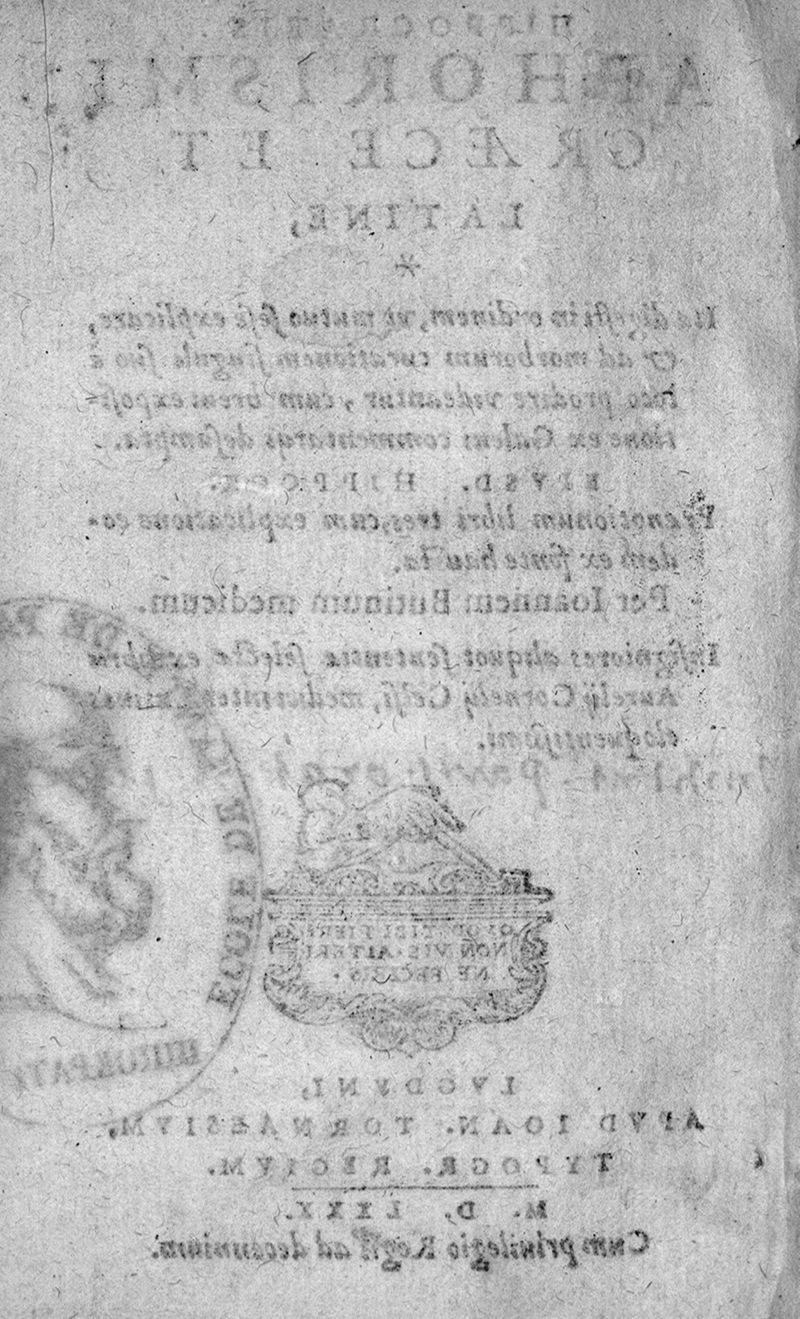 HIPPOCRATIS
APHORISMI
GRÆCE ET
LATINE,
*
Ita digesti in ordinem, ut mutuo sese explicare,
& ad morborum curationem singuli suo è
loco prodire videantur, cum breui exposi-
tione ex Galeni commentarijs desumpta.
EIVSD. HIPPOCR.
Prænotionum libri tres, cum explicatione eo-
dem ex fonte hausta.
Per Ioannem Butinum medicum.
Insigniores aliquot sententiæ selectæ ex libris
Aurelij Cornelij Celsi, medicinæ
eloquentissimi.
QVOD TIBI FIERI
NON VIS, ALTERI
NE FECERIS.
ECOLE DE
LVGDVNI,
APVD IOAN. TORNÆSIVM,
TYPOGR. REGIVM.
M. D. LXXX.
Cum priuilegio Regis ad decennium.